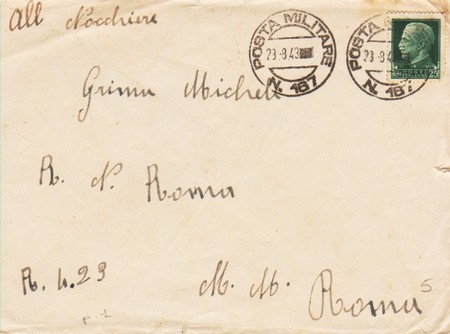 All Nocchiere
POSTA MILITARE
23·8·43
N. 167
POSTA
23·8·4
N. 167
25
Grima Michele
R. N. Roma
R. 4. 23
M. M. Roma
5